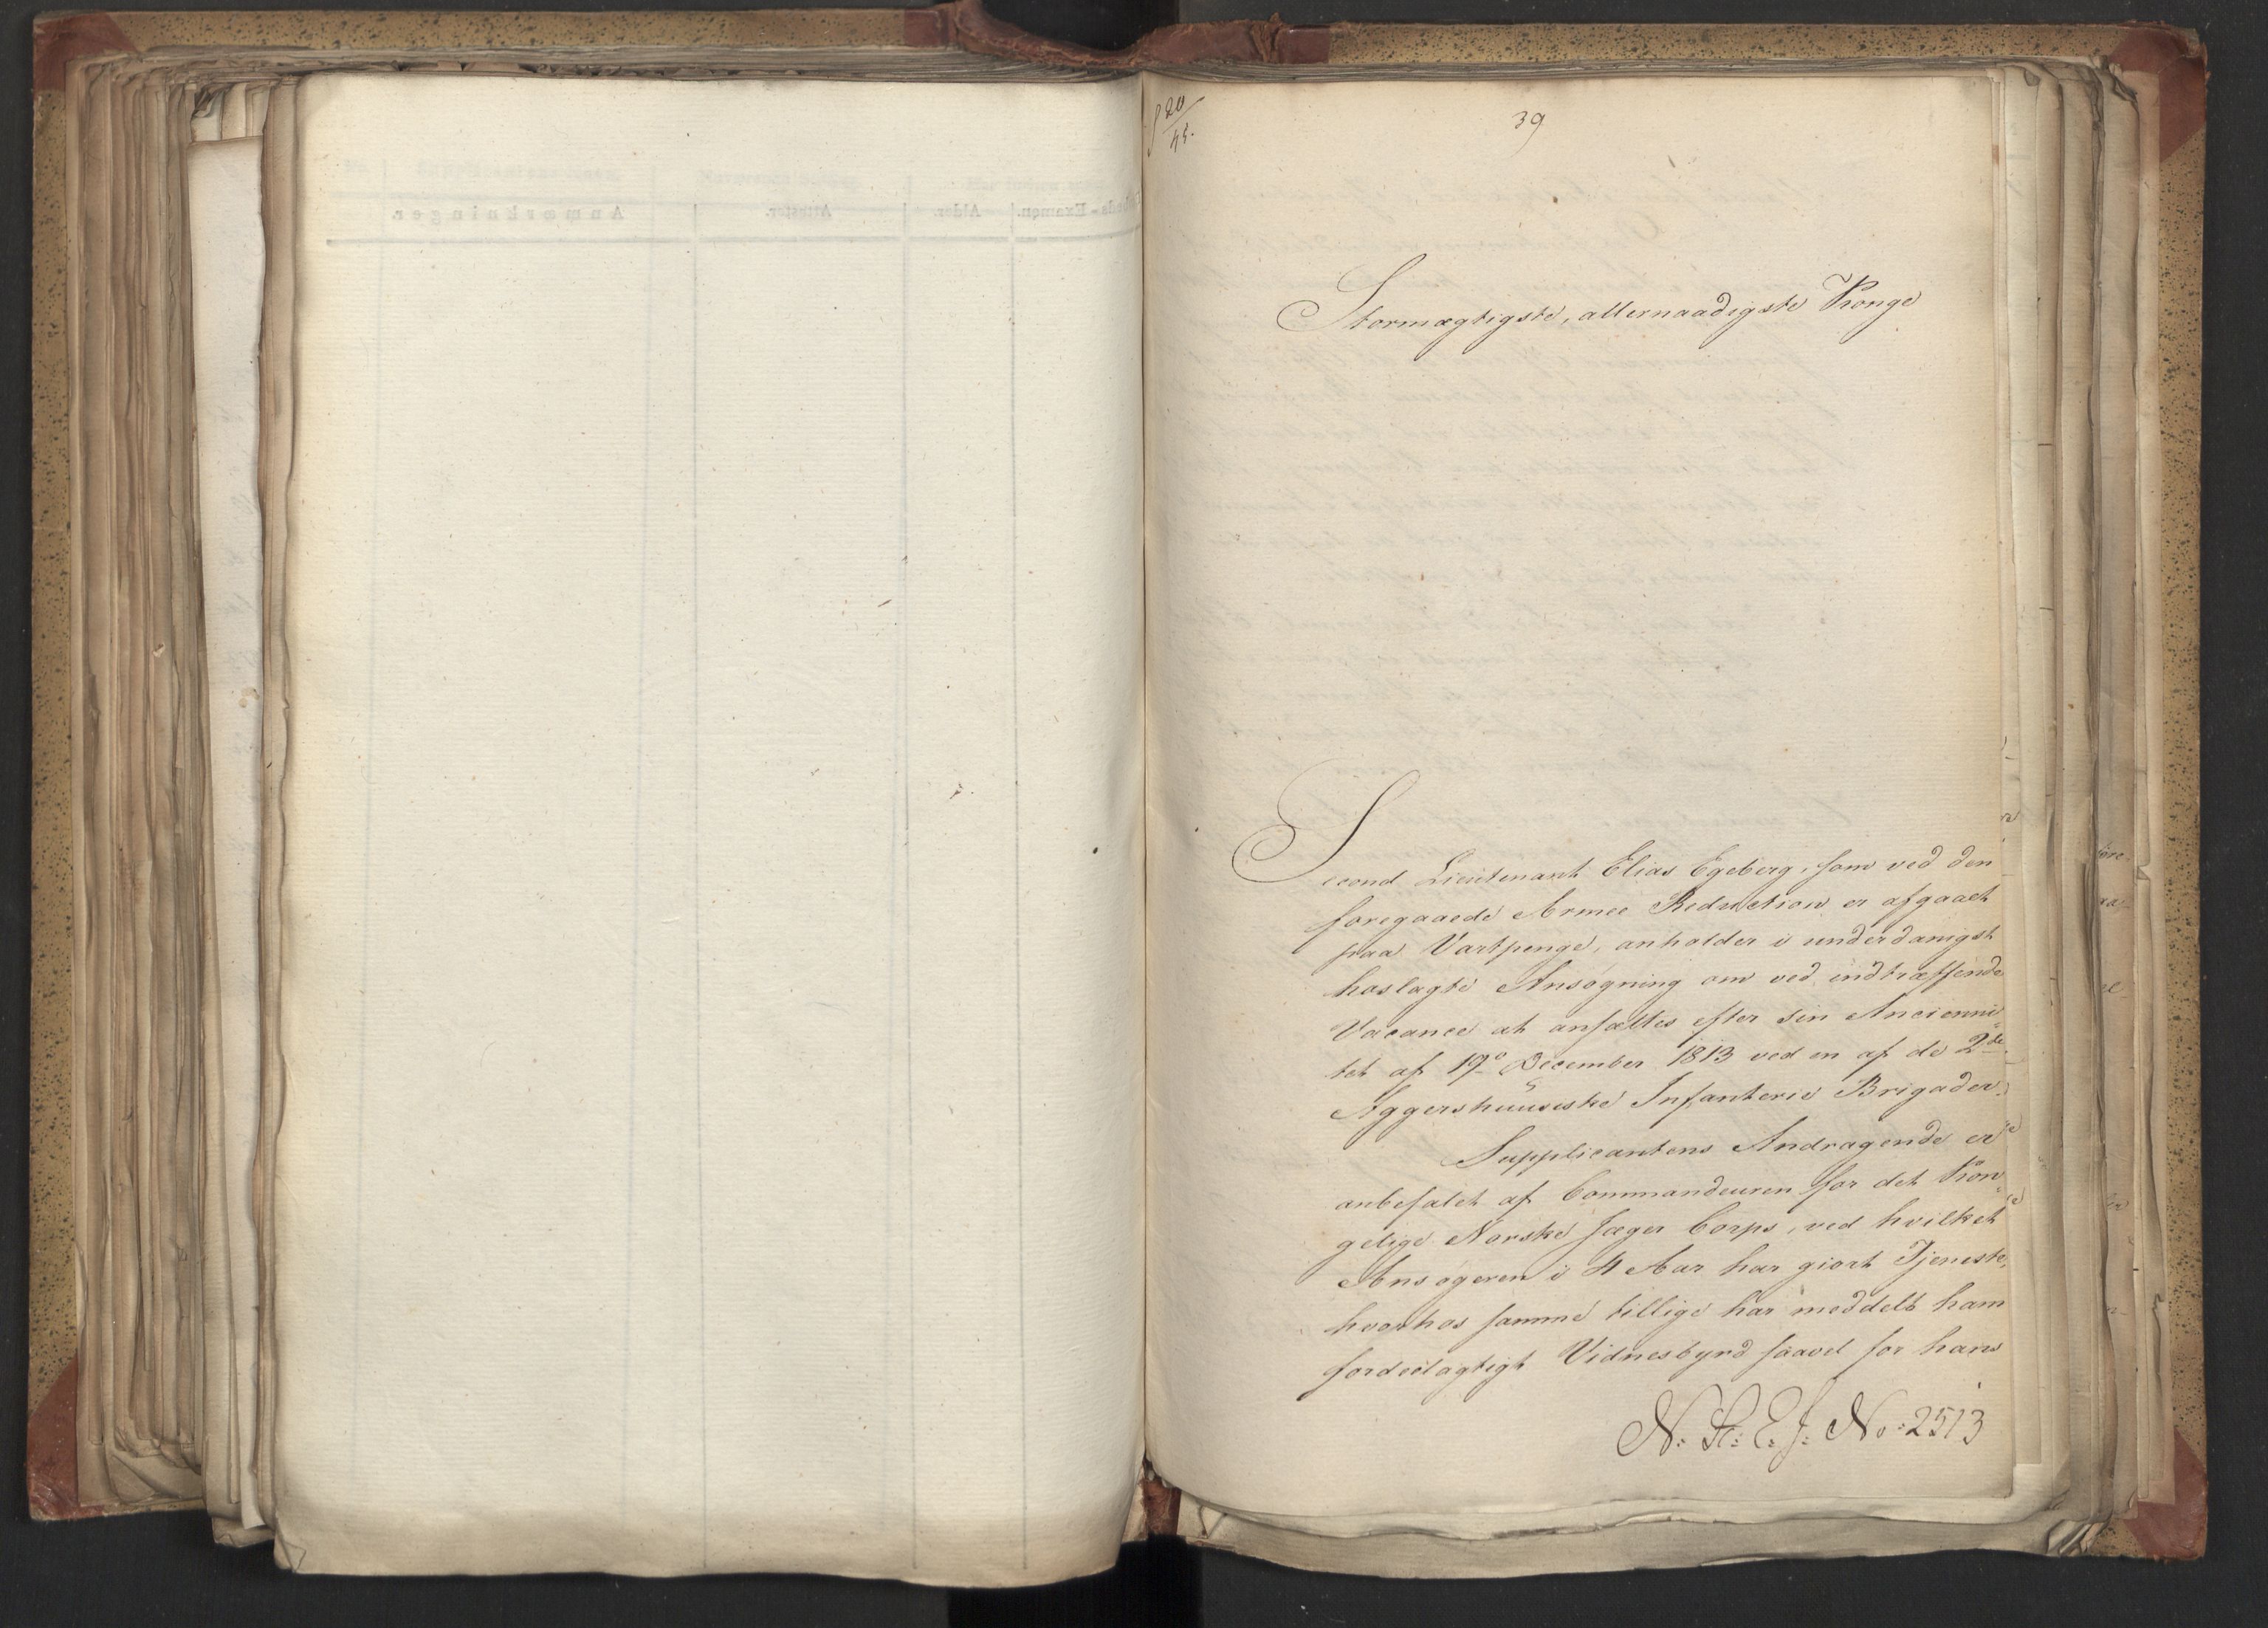 20
45.
39
Stormægtigste, allernaadigste Konge
Second Lieutenant Elias Egeberg, som ved den
foregaaede Armee Reduction er afgaaet
paa Vartpenge, anholder i underdanigst
hoslagte Ansøgning om ved indtræffende
Vacance at ansættes efter sin Ancienni-
tet af 19de December 1813 ved en af de 2de
Aggershuusiske Infanterie Brigader.
Supplicantens Andragende er
anbefalet af Commandeuren for det Kon-
gelige Norske Jæger Corps, ved hvilket
Ansøgeren i 4 Aar har giort Tjeneste,
hvorhos samme tillige har meddelt ham
fordeelagtigt Vidnesbyrd saavel for hans
No: 2513
Anmærkninger.
Attester.
Alder.
Examen.